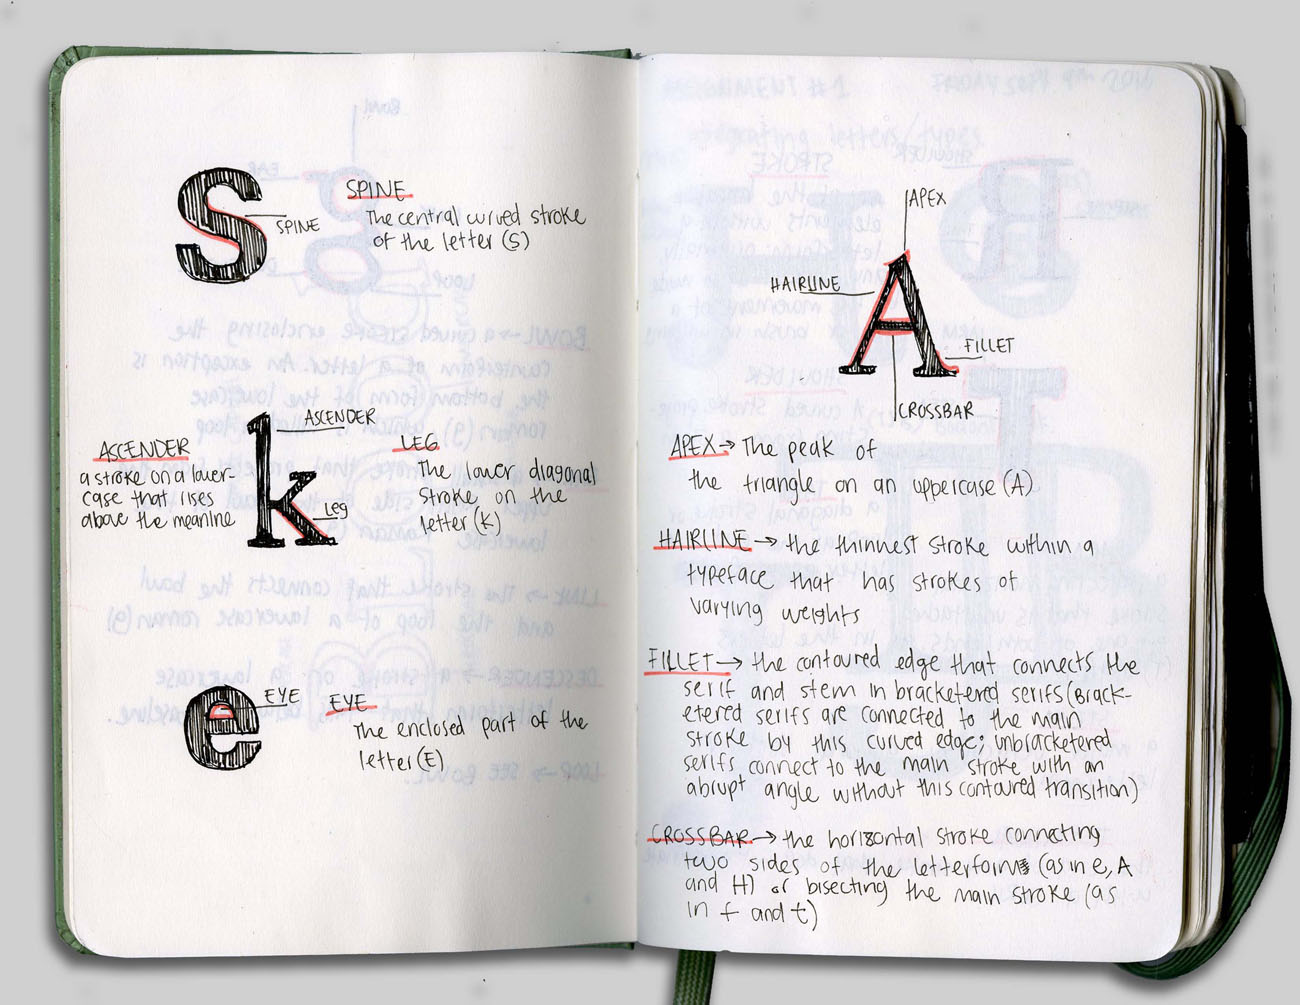 S
SPINE
SPINE
The central curved stroke
of the letter (S)
k
ASCENDER
ASCENDER
a stroke on a lower-
case that rises
above the meanline
LEG
The lower diagonal
stroke on the
letter (K)
Leg
e
EYE
EYE
The enclosed part of the
letter (E)
APEX
HAIRLINE
A
FILLET
CROSSBAR
APEX → The peak of
the triangle on an uppercase (A)
HAIRLINE → the thinnest stroke within a
typeface that has strokes of
varying weights
FILLET → the contoured edge that connects the
serif and stem in bracketered serifs (Brack-
etered serifs are connected to the main
stroke by this curved edge; unbracketered
serifs connect to the main stroke with an
abrupt angle without this contoured transition)
CROSSBAR → the horizontal stroke connecting
two sides of the letterform (as in e, A
and H) or bisecting the main stroke (as
in f and t)